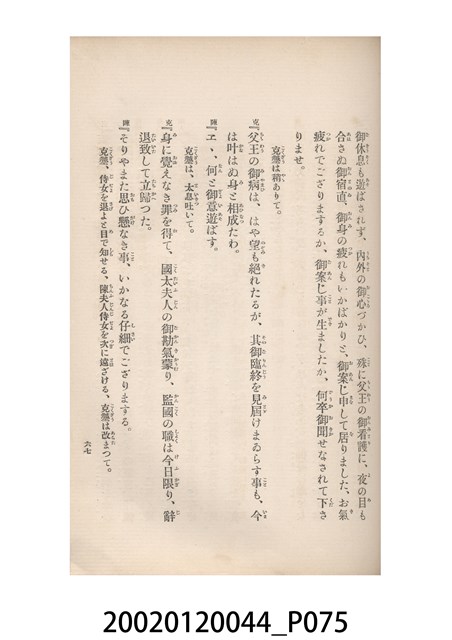 御休息も遊ばされず、内外の御心づかひ、殊に父王の御看護に、夜の目も
合さぬ御宿直、御身の疲れもいかばかりと、御案じ申して居りました、お氣
疲れでござりまするか、御案じ事が生ましたか、何卒御聞せなされて下さ
りませ。
克塽は稍ありて。
克『父王の御病は、はや望も絶れたるが、其御臨終を見屆けまゐらす事も、今
は叶はぬ身と相成たわ。
陳『ヱヽ、何と御意遊ばす。
克塽は、太息吐いて。
克『身に覺えなき罪を得て、國太夫人の御勘氣蒙り、監國の職は今日限り、辭
退致して立歸つた。
陳『そりやまた思ひ懸なき事、いかなる仔細でござりまする。
克塽、侍女を退よと目で知せる、陳夫人侍女を次に遠ざける、克塽は改まつて。
六七
20020120044_P075